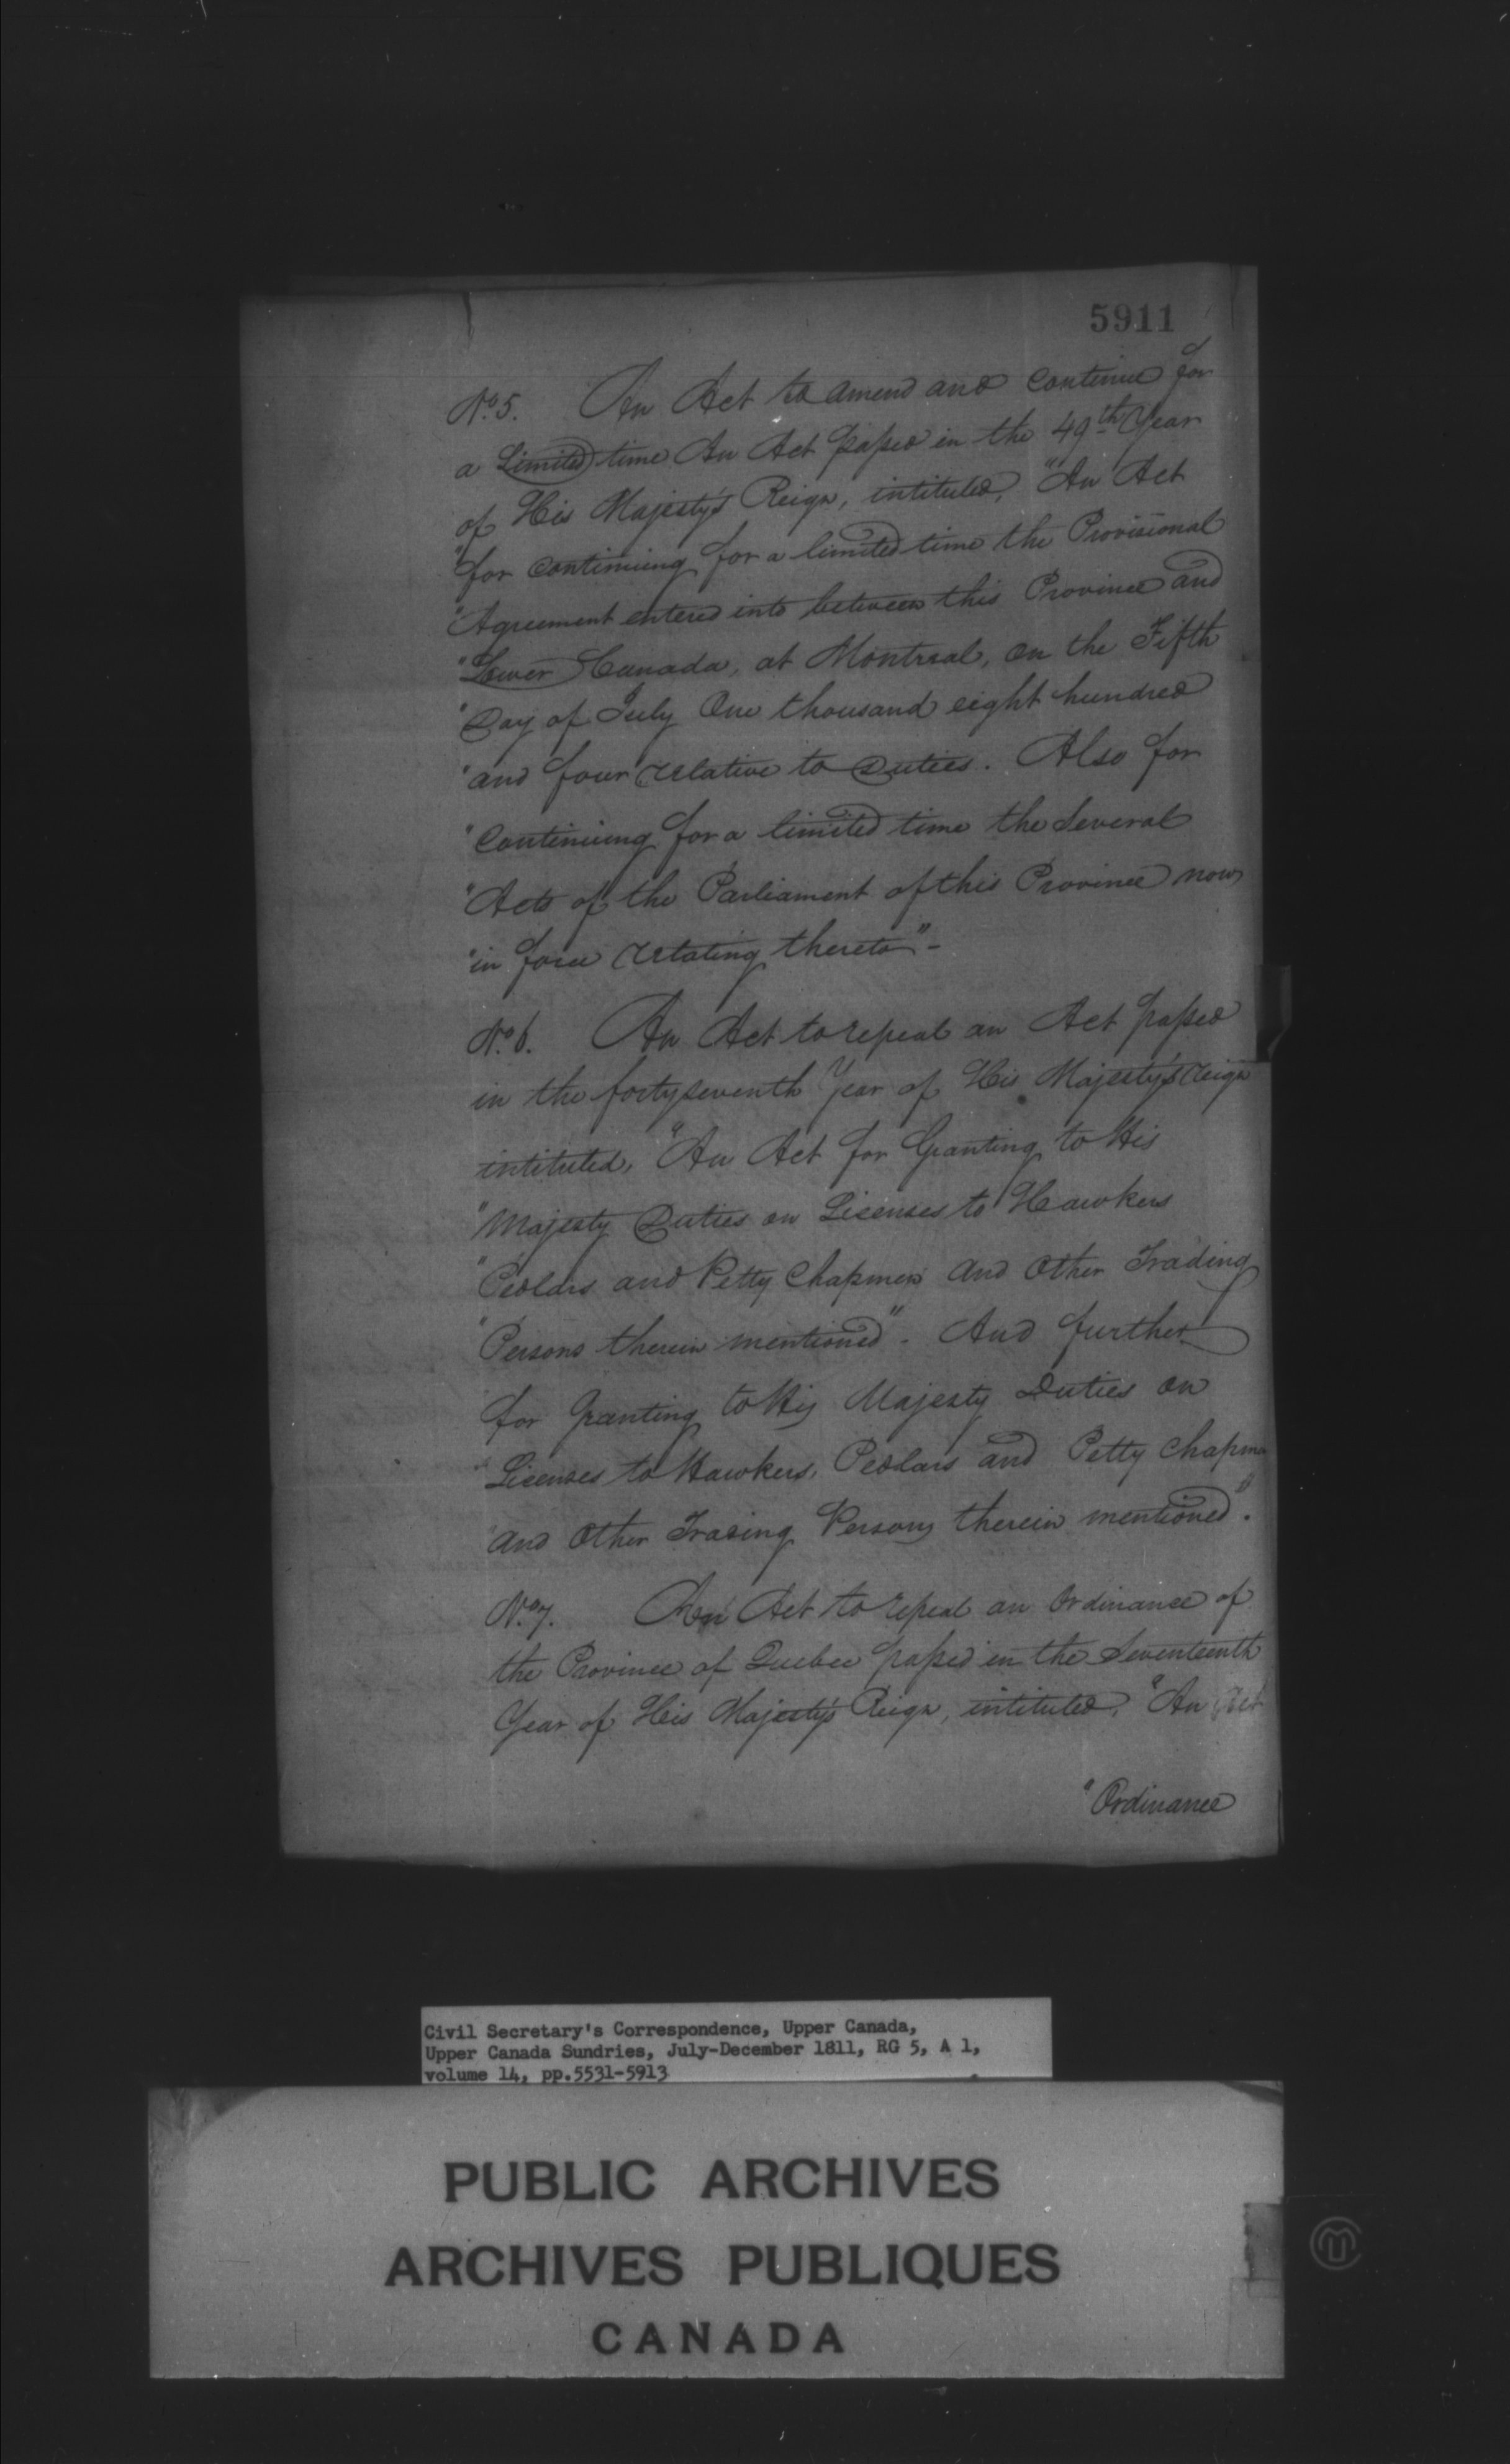 5911
No. 5. An Act to amend and continue for
a Limited time An Act passed in the 49th Year
of His Majesty's Reign, intituled, "An Act
"for continuing for a limited time the Provisional
"Agreement entered into between this Province and
"Lower Canada, at Montreal, on the Fifth
"Day of July One thousand eight hundred
"and four relative to Duties. Also for
"Continuing for a limited time the Several
"Acts of the Parliament of this Province now
"in force relating thereto"-
No. 6. An Act to repeal an Act passed
in the forty seventh Year of His Majesty's reign
intituled, "An Act for Granting to His
"Majesty Duties on Licenses to Hawkers
"Pedlars and Petty Chapmen And Other Trading
"Persons therein mentioned". And further
for Granting to His Majesty Duties on
"Licenses to Hawkers, Pedlars and Petty Chapmen
"And Other Trading Persons therein mentioned".
No. 7. An Act to repeal an Ordinance of
the Province of Quebec passed in the Seventeenth
Year of His Majesty's Reign, intituled, "An Act
"Ordinance
Civil Secretary's Correspondence, Upper Canada,
Upper Canada Sundries, July-December 1811, RG 5, A 1,
volume 14, pp.5531-5913
PUBLIC ARCHIVES
ARCHIVES PUBLIQUES
CANADA